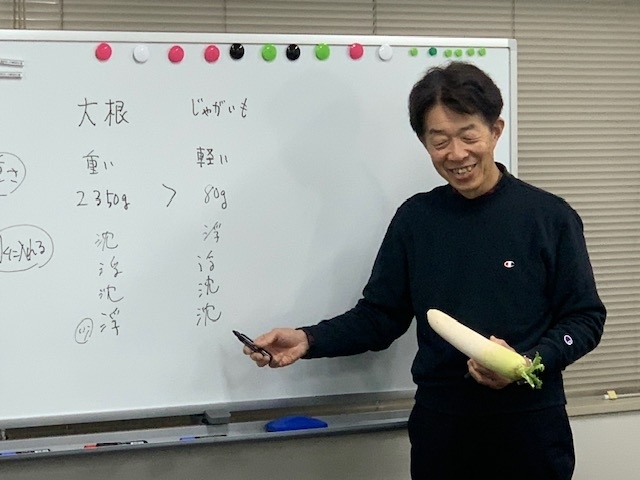 大根 じゃがいも
重い 軽い
2350g > 80g
沈 浮
浮 浮
沈 沈
浮 沈
重さ
水に入れる